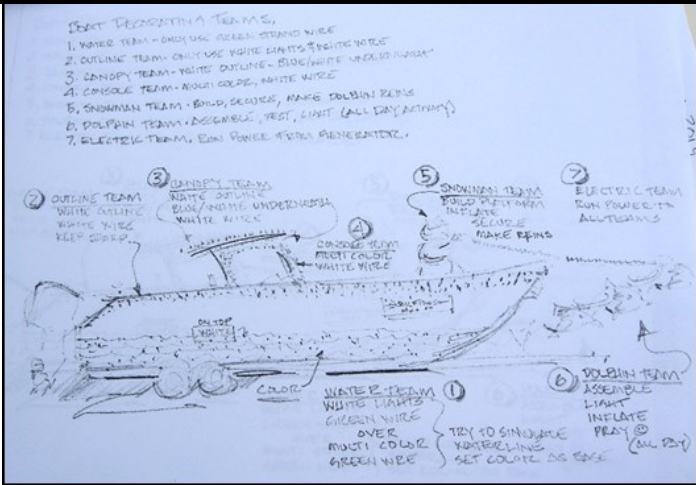 BOAT DECORATING TEAMS,
1. WATER TEAM - ONLY USE GREEN STRAND WIRE
2. OUTLINE TEAM - ONLY USE WHITE LIGHTS & WHITE WIRE
3. CANOPY TEAM - WHITE OUTLINE - BLUE/WHITE UNDERNEATH
4. CONSOLE TEAM - MULTI COLOR, WHITE WIRE
5. SNOWMAN TEAM - BUILD, SECURE, MAKE DOLPHIN REINS
6. DOLPHIN TEAM - ASSEMBLE, TEST, LIGHT (ALL DAY ACTIVITY)
7. ELECTRIC TEAM, RUN POWER FROM GENERATOR.
2 OUTLINE TEAM
WHITE OUTLINE
WHITE WIRE
KEEP SHARP
3 CANOPY TEAM
WHITE OUTLINE
BLUE/WHITE UNDERNEATH
WHITE WIRE
4
CONSOLE TEAM
MULTI COLOR
WHITE WIRE
5
SNOWMAN TEAM
BUILD PLATFORM
INFLATE
SECURE
MAKE REINS
7
ELECTRIC TEAM
RUN POWER TO
ALL TEAMS
ON TOP
WHITE
COLOR
WATER TEAM 1
WHITE LIGHTS
GREEN WIRE
OVER
MULTI COLOR
GREEN WIRE
TRY TO SIMULATE
WATERLINE
SET COLOR AS BASE
6 DOLPHIN TEAM
ASSEMBLE
LIGHT
INFLATE
PRAY
(ALL DAY)